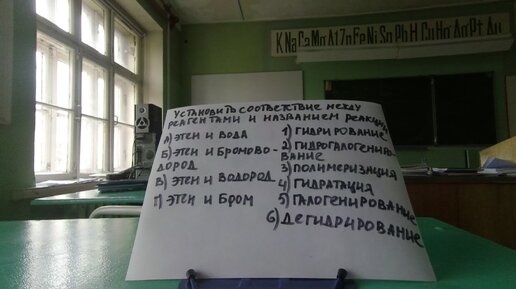 K Na Ca Mg Al Zn Fe Ni Sn Pb H Cu Hg Ag Pt Au
УСТАНОВИТЬ СООТВЕТСТВИЕ МЕЖДУ
РЕАГЕНТАМИ И НАЗВАНИЕМ РЕАКЦИИ
А) ЭТЕН И ВОДА
Б) ЭТЕН И БРОМОВО-
ДОРОД
В) ЭТЕН И ВОДОРОД
Г) ЭТЕН И БРОМ
1) ГИДРИРОВАНИЕ
2) ГИДРОГАЛОГЕНИРО-
ВАНИЕ
3) ПОЛИМЕРИЗАЦИЯ
4) ГИДРАТАЦИЯ
5) ГАЛОГЕНИРОВАНИЕ
6) ДЕГИДРИРОВАНИЕ